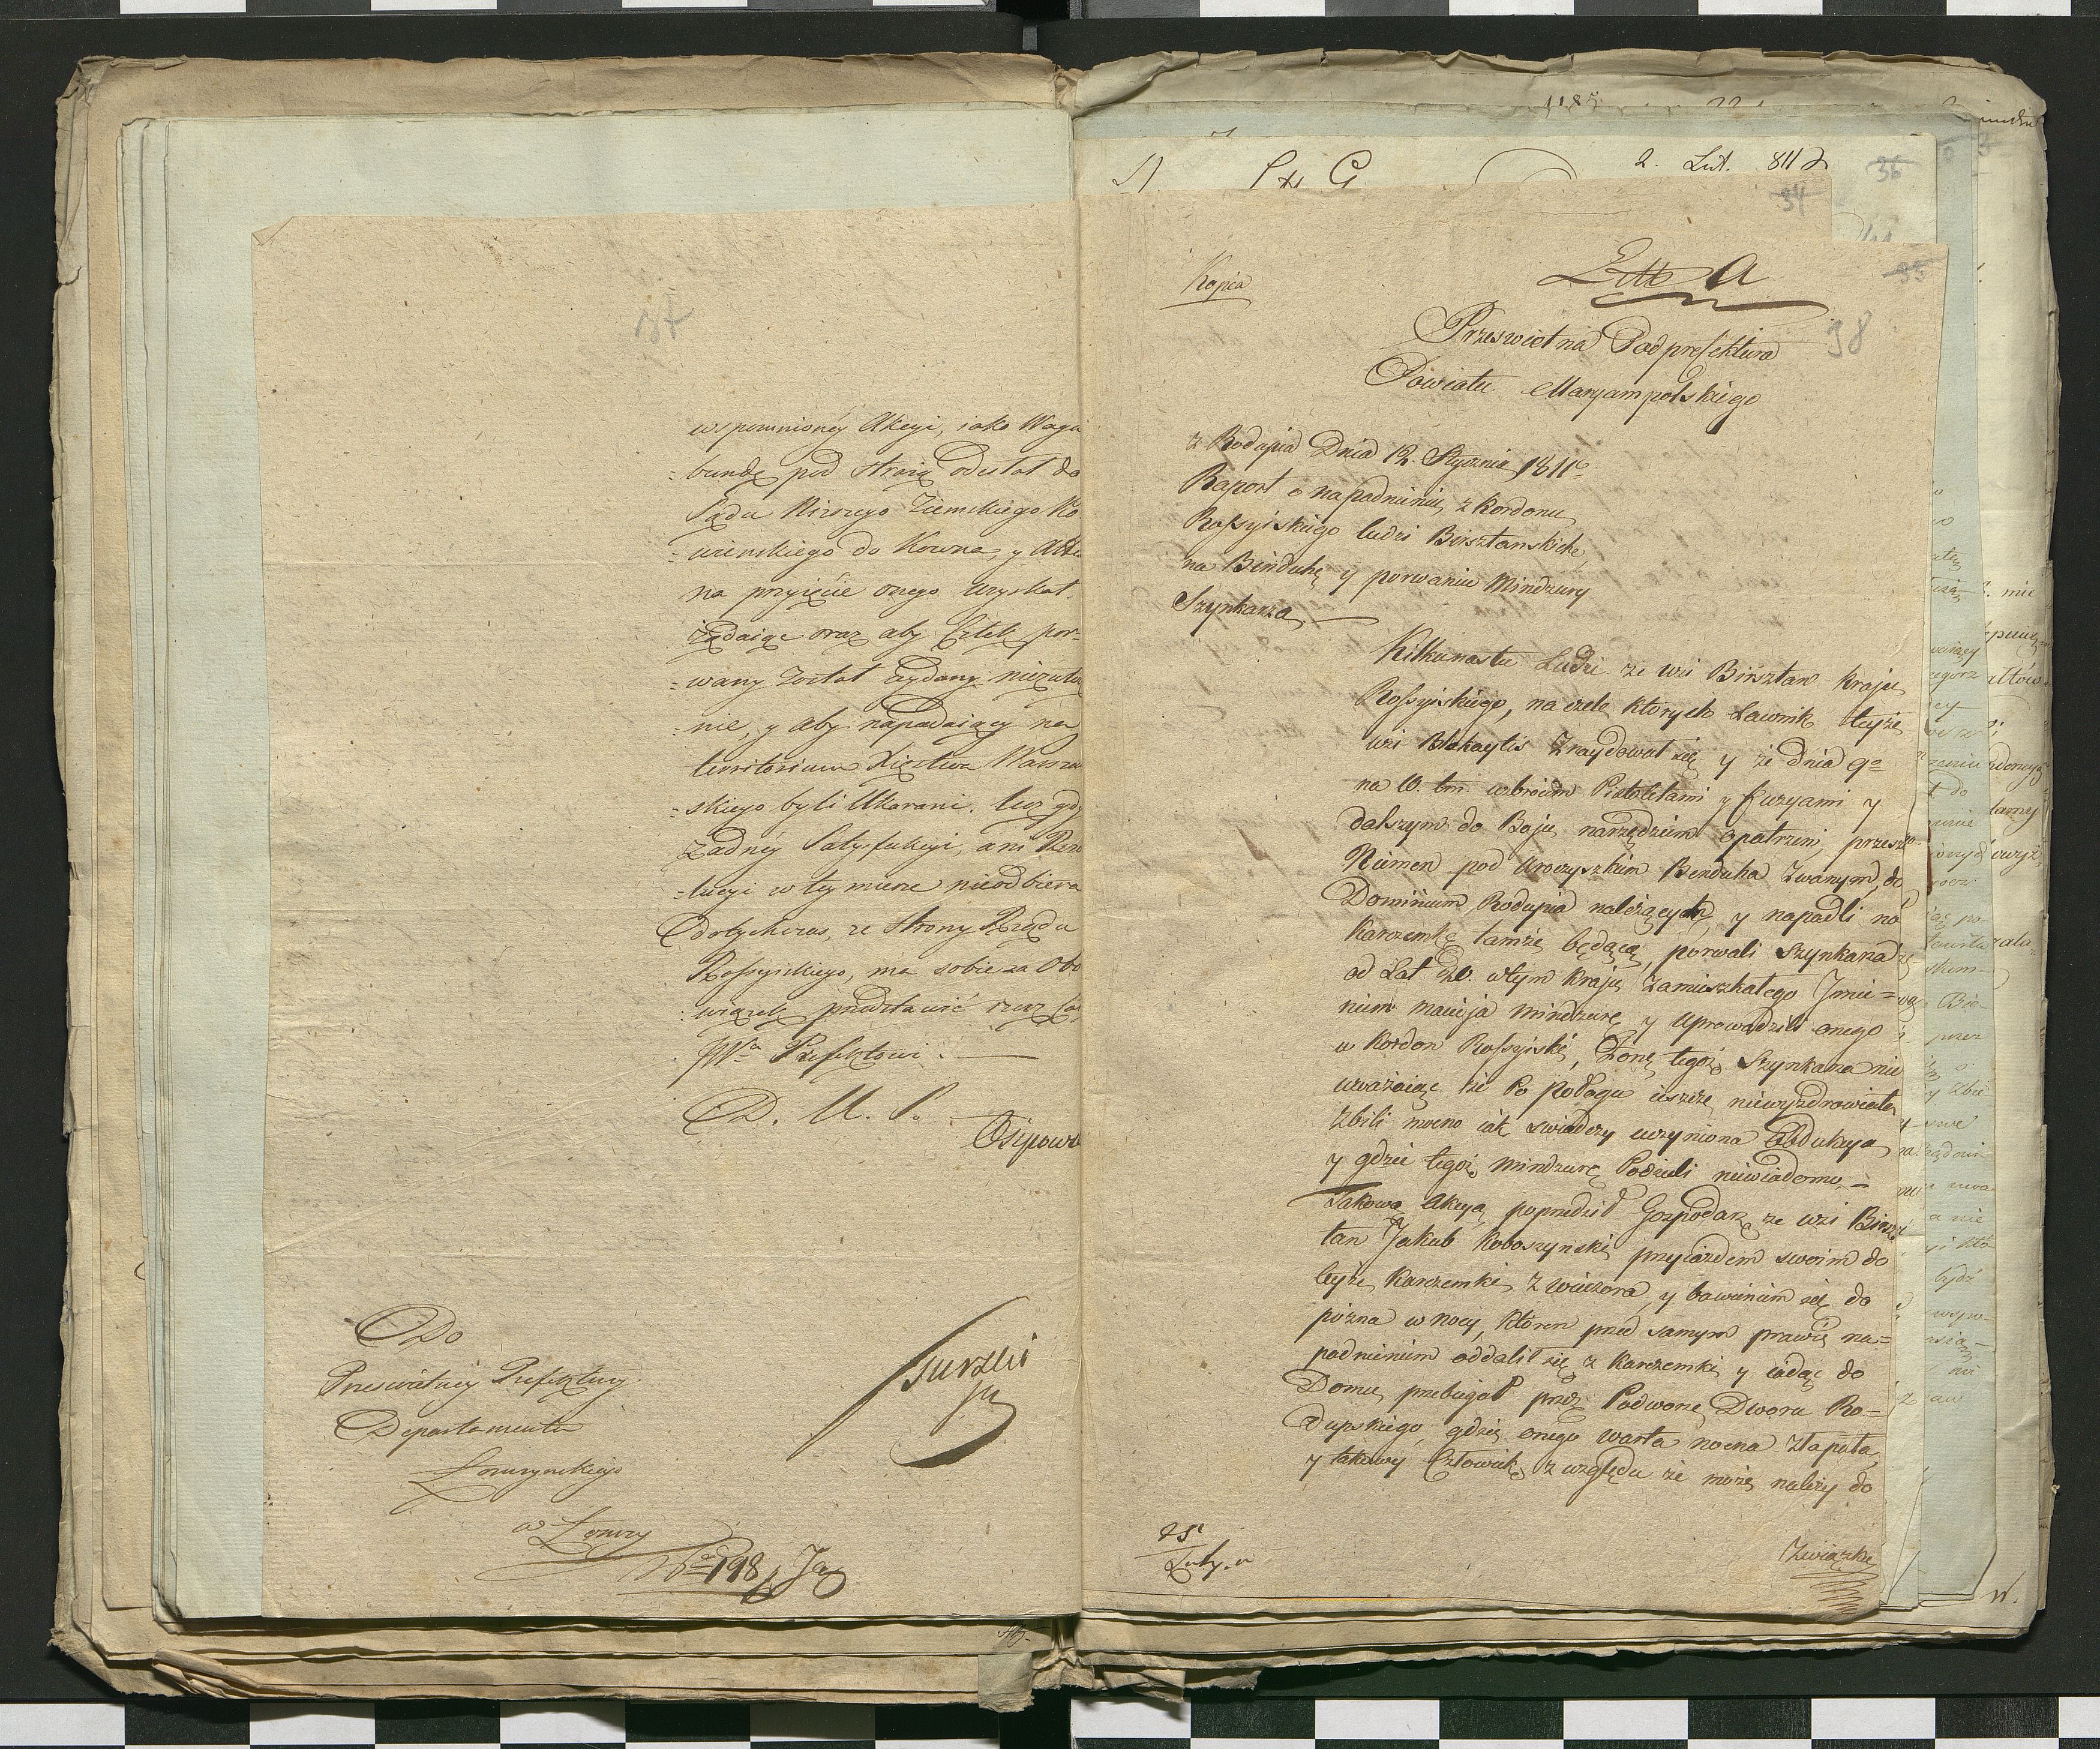 wspomnioney Akcyi, iako Waga
=bundę pod strażą odesłał do
Sądu Niższego Ziemskiego Ko
=wienskiego do Kowna, y Atte
na przyięcie onego uzyskał.
żądaiąc oraz aby Człek por=
=wany został wydany niezwło
=nie, y aby napadaiący na
territorium Xięstwa Warsza
=skiego byli Ukarani. lecz gdy
żadnéy Satysfakcyi, ani Rezo
=lucyi w tey mierze nieodbiera
dotychczas, ze Strony Rządu
Rossyiskiego, ma sobie za Obo
=wiązek przedstawić rzecz
JWu Prefektowi.
D. U. P.
Osipows
Do
Prześwietney Prefektury
Departamentu
Łomżynskiego
w Łomży
No 198
2. Lut. 811
36
34
35
38
37
Kopia
Litt A
Przeswietna Podprefektura
Powiatu Maryampolskiego
z Rodupia Dnia 12. Stycznia 1811o
Raport o napadnieniu z kordonu
Rossyiskiego ludzi Birsztanskich
na Binduhę y porwaniu Mindzury
Szynkarza
Kilkunastu Ludzi ze wsi Birsztan kraju
Rossyiskiego, na czele ktorych Ławnik teyże
wsi Blakaytis znaydował się y że dnia 9o
na 10. tm. uzbroieni Pistoletami y fuzyami y
dalszym do Boju narzędziem opatrzeni, przeszło
Niemen pod Uroczyszkiem Benduha zwanym, do
Dominium Rodupia należącym, y napadli na
karczemkę tamże będącą, porwali szynkarza
od Lat 20. w tym kraju zamieszkałego Jmie=
niem Macieja Mindzurę y uprowadzili onego
w kordon Rossyiski, Żonę tegoż Szynkarza nie
uważaiąc że Po połogu ieszcze niewyzdrowiała
zbili mocno iak swiadczy uczyniona Obdukcya
y gdzie tegoż Mindzurę Podzieli niewiadomo. =
Takową Akcyą poprzedził Gospodarz ze wsi Birsz
tan Jakub Koboszynski przyiazdem swoim do
teyże karczemki z wieczora y bawieniem się do
pózna w nocy, ktoren przed samym prawie na=
padnieniem oddalił się z karczemki y iadąc do
Domu przebiegał przez Podworze Dworu Ro=
dupskiego, gdzie onego warta nocna złapała,
y takowy Człowiek z względu że może należy do
Związku